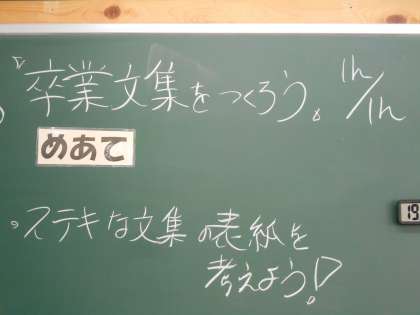 『卒業文集をつくろう。 1h/1h
めあて
。ステキな文集の表紙を
考えよう!』
19